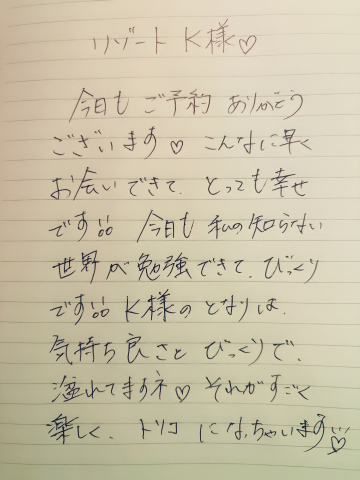 リゾート K様♡
今日も ご予約 ありがとう
ございます♡ こんなに早く
お会いできて、とっても幸せ
です 今日も 私の知らない
世界が勉強できて、びっくり
です K様の となりは、
気持ち良さと びっくりで、
溢れてますネ♡ それがすごく
楽しく、トリコ になっちゃいます♡